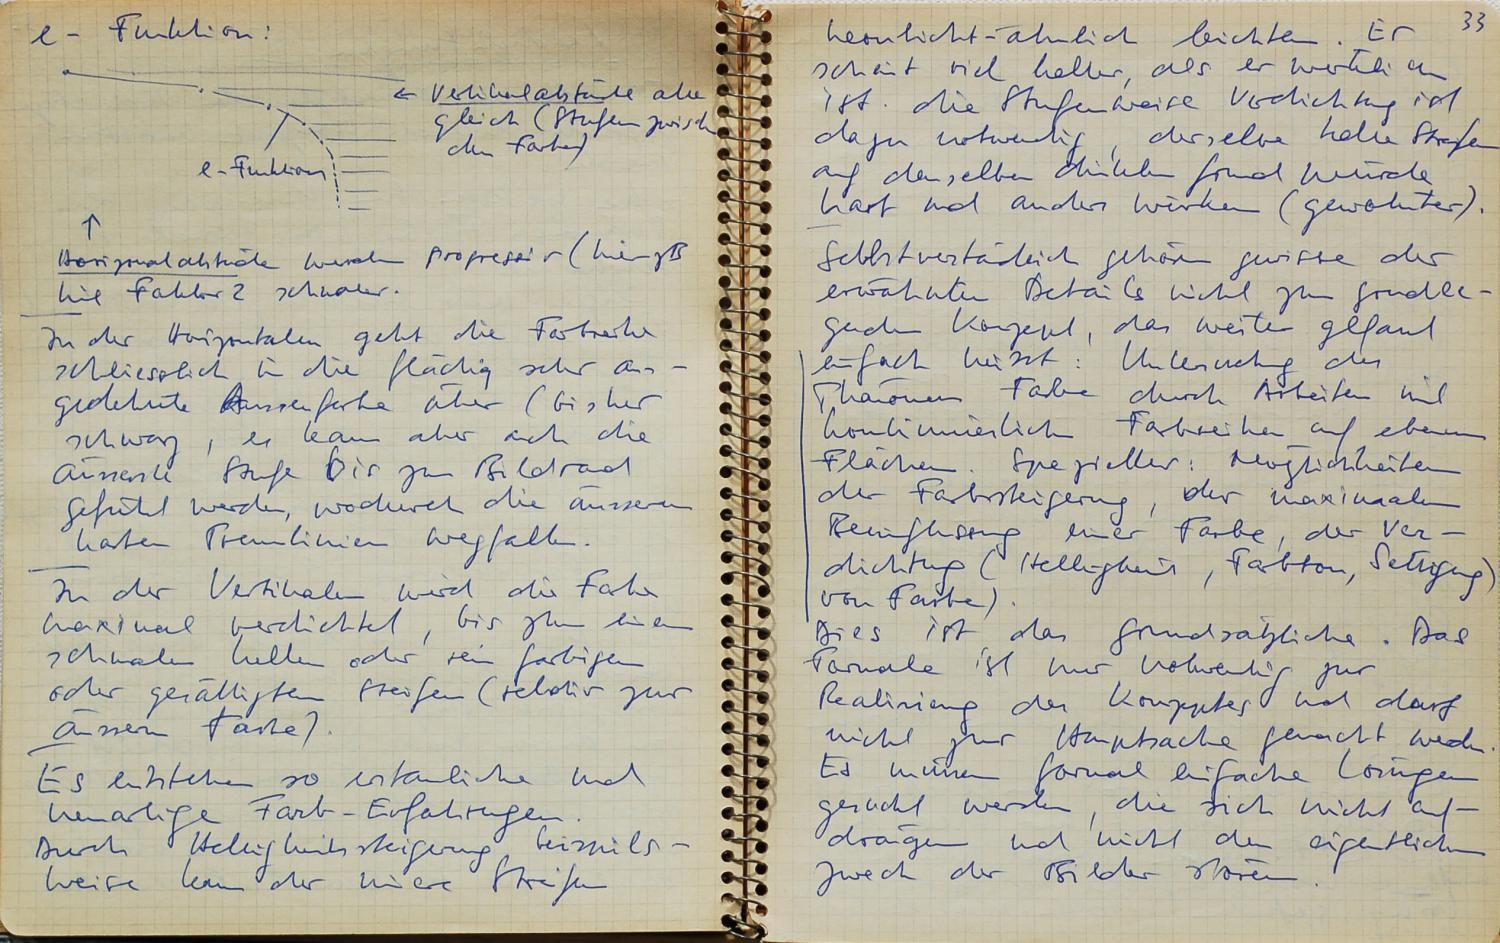 e - Funktion:
← Vertikalabstände alle
gleich (Stufen zwisch
den Farben)
e-Funktion
↑
Horizontalabstände werden progressiv (hier zB
mit Faktor 2 schmaler.
In der Horizontalen geht die Farbreihe
schliesslich in die flächig sehr aus-
gedehnte Aussenfarbe über (bisher
schwarz, es kann aber auch die
äusserste Stufe bis zum Bildrand
geführt werden, wodurch die äusseren
harten Trennlinien wegfallen.
In der Vertikalen wird die Farbe
maximal verdichtet, bis zum einen
schmalen hellen oder rein farbigen
oder gesättigten Streifen (relativ zur
äussern Farbe).
Es entstehen so erstaunliche und
neuartige Farb-Erfahrungen.
Durch Helligkeitssteigerung beispiels-
weise kann der innere Streifen
33
neonlicht-ähnlich leuchten. Er
scheint viel heller, als er wirklich
ist. die Stufenweise Verdichtung ist
dazu notwendig, derselbe helle Streifen
auf demselben dunklen Grund würde
hart und anders wirken (gewohnter).
Selbstverständlich gehören gewisse der
erwähnten Details nicht zum grundle-
genden Konzept, das weiter gefasst
einfach heisst: Untersuchung des
Phänomens Farbe durch Arbeiten mit
kontinuierlichen Farbreihen auf ebenen
Flächen. Spezieller: Möglichkeiten
der Farbsteigerung, der maximalen
Beeinflussung einer Farbe, der Ver-
dichtung (Helligkeit, Farbton, Sättigung)
von Farbe).
Dies ist das grundsätzliche. Das
Formale ist nur notwendig zur
Realisierung des Konzeptes und darf
nicht zur Hauptsache gemacht werden.
Es müssen formal einfache Lösungen
gesucht werden, die sich nicht auf-
drängen und nicht den eigentlichen
Zweck der Bilder stören.